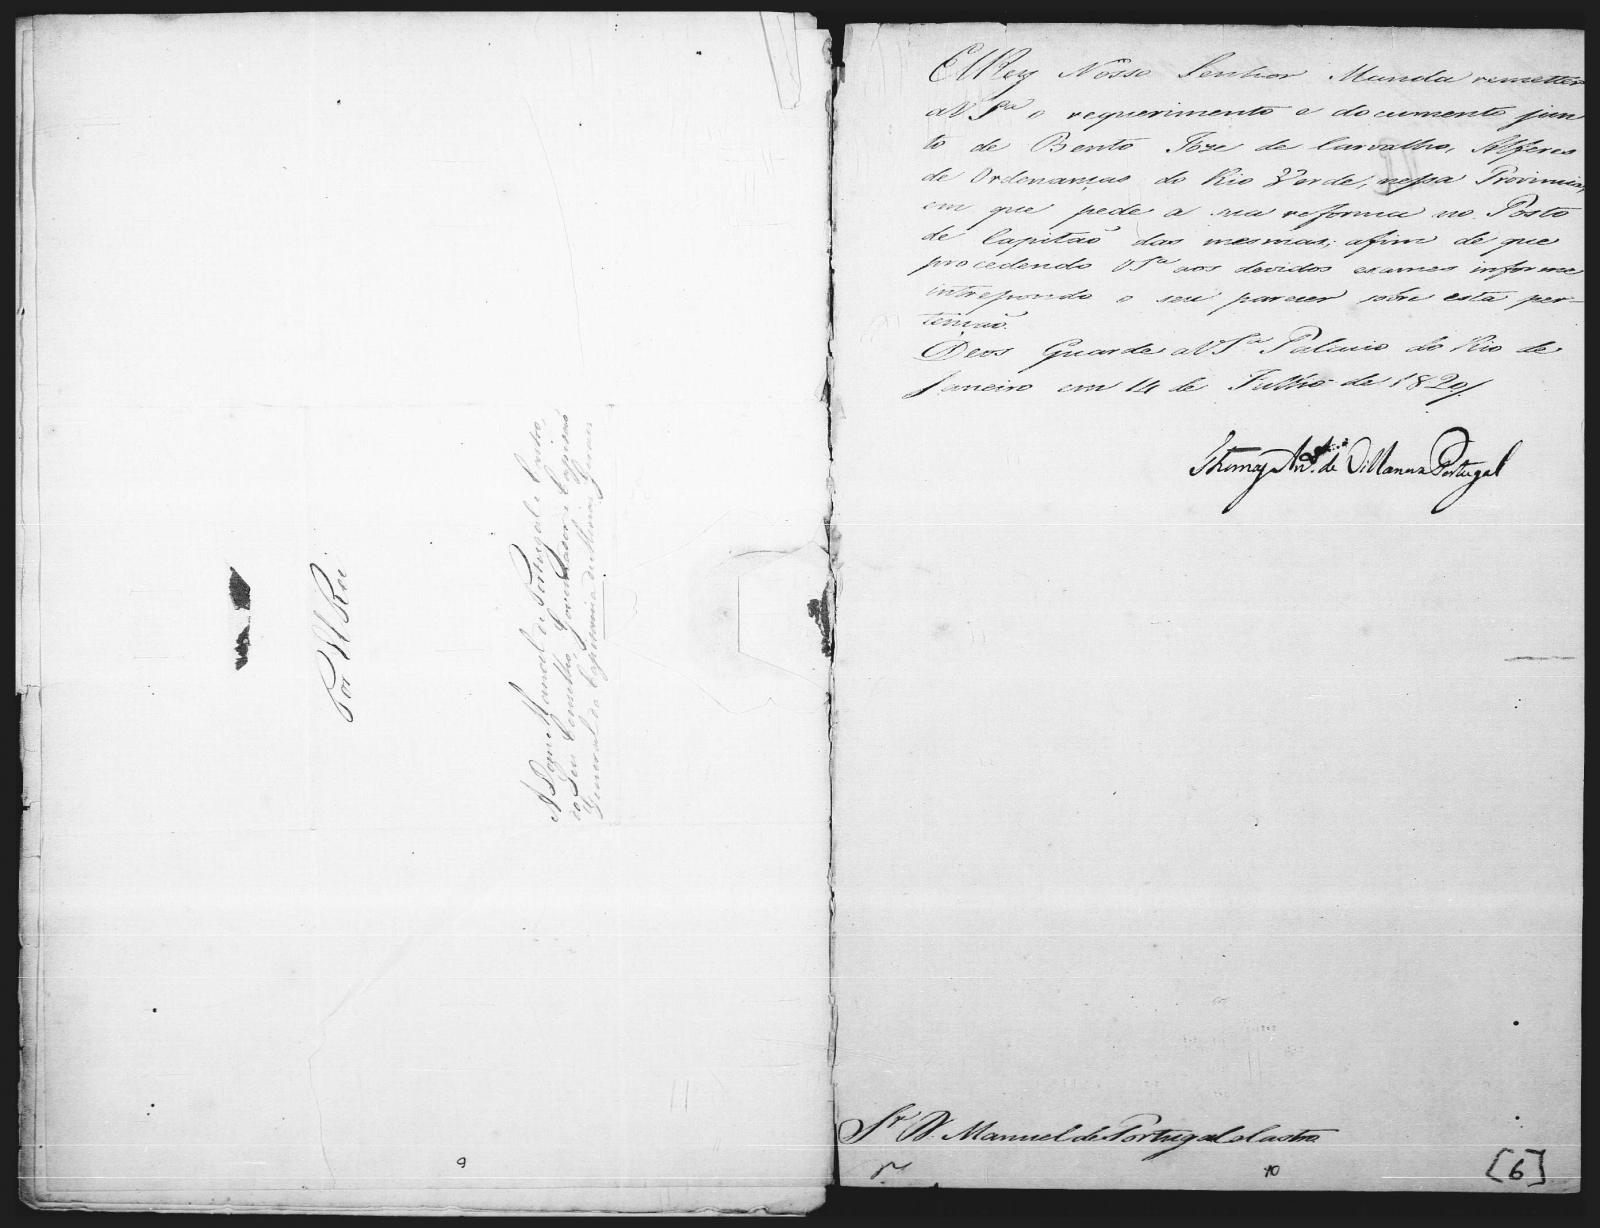 Por ElRei
A Dom Manoel de Portugal e Castro,
do Seu Conselho, Governador e Capitaõ
General da Capitania de Minas Geraes
9
ElRey Nosso Senhor Manda remetter
a V Sª o requerimento e documento jun
to de Bento Joze de Carvalho, Alferes
de Ordenanças do Rio Verde, nessa Provincia,
em que pede a sua reforma no Posto
de Capitaõ das mesmas; afim de que
procedendo V Sª aos devidos exames informe
interpondo o seu parecer sobre esta per-
tençaõ.
Deos Guarde a V Sª Palacio do Rio de
Janeiro em 14 de Julho de 1820/.
Thomaz Antº. de Villanova Portugal
Sr D. Manuel de Portugal e Castro
10
[6]